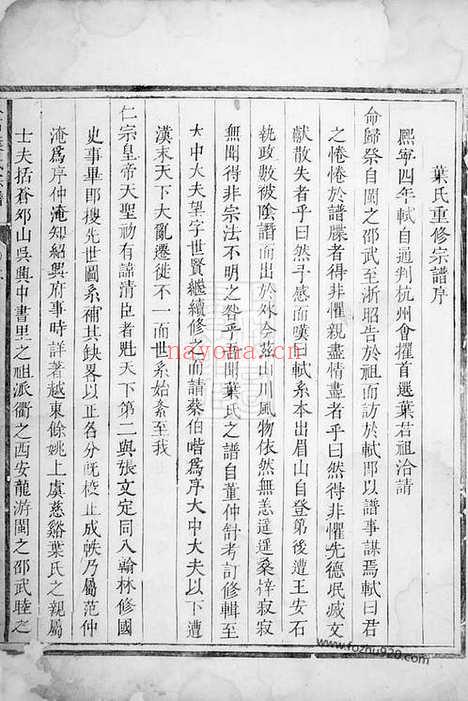 葉氏重修宗譜序
熙寧四年軾自通判杭州會擢首選葉君祖洽請
命歸祭自閩之邵武至浙昭告於祖而訪於軾即以譜事謀焉軾曰君
之惓惓於譜牒者得非懼親盡情盡者乎曰然得非懼先德泯滅文
獻散失者乎曰然予感而嘆曰軾系本出眉山自登第後遭王安石
執政數被陰譖而出於外今茲山川風物依然無恙遥遥桑梓寂寂
無聞得非宗法不明之咎乎吾聞葉氏之譜自董仲舒考訂修輯至
大中大夫望字世賢繼續修之而請蔡伯喈為序大中大夫以下遭
漢末天下大亂遷徙不一而世系始紊至我
仁宗皇帝天聖初有諱清臣者魁天下第二與張文定同入翰林修國
史事畢即搜先世圖系補其缺畧以正各分既校正成帙乃屬范仲
淹為序仲淹知紹興府事時詳著越東餘姚上虞慈谿葉氏之親屬
士夫括蒼夘山吳興中書里之祖派衢之西安龍游閩之邵武睦之
nayona.cn
www.fozhu920.com